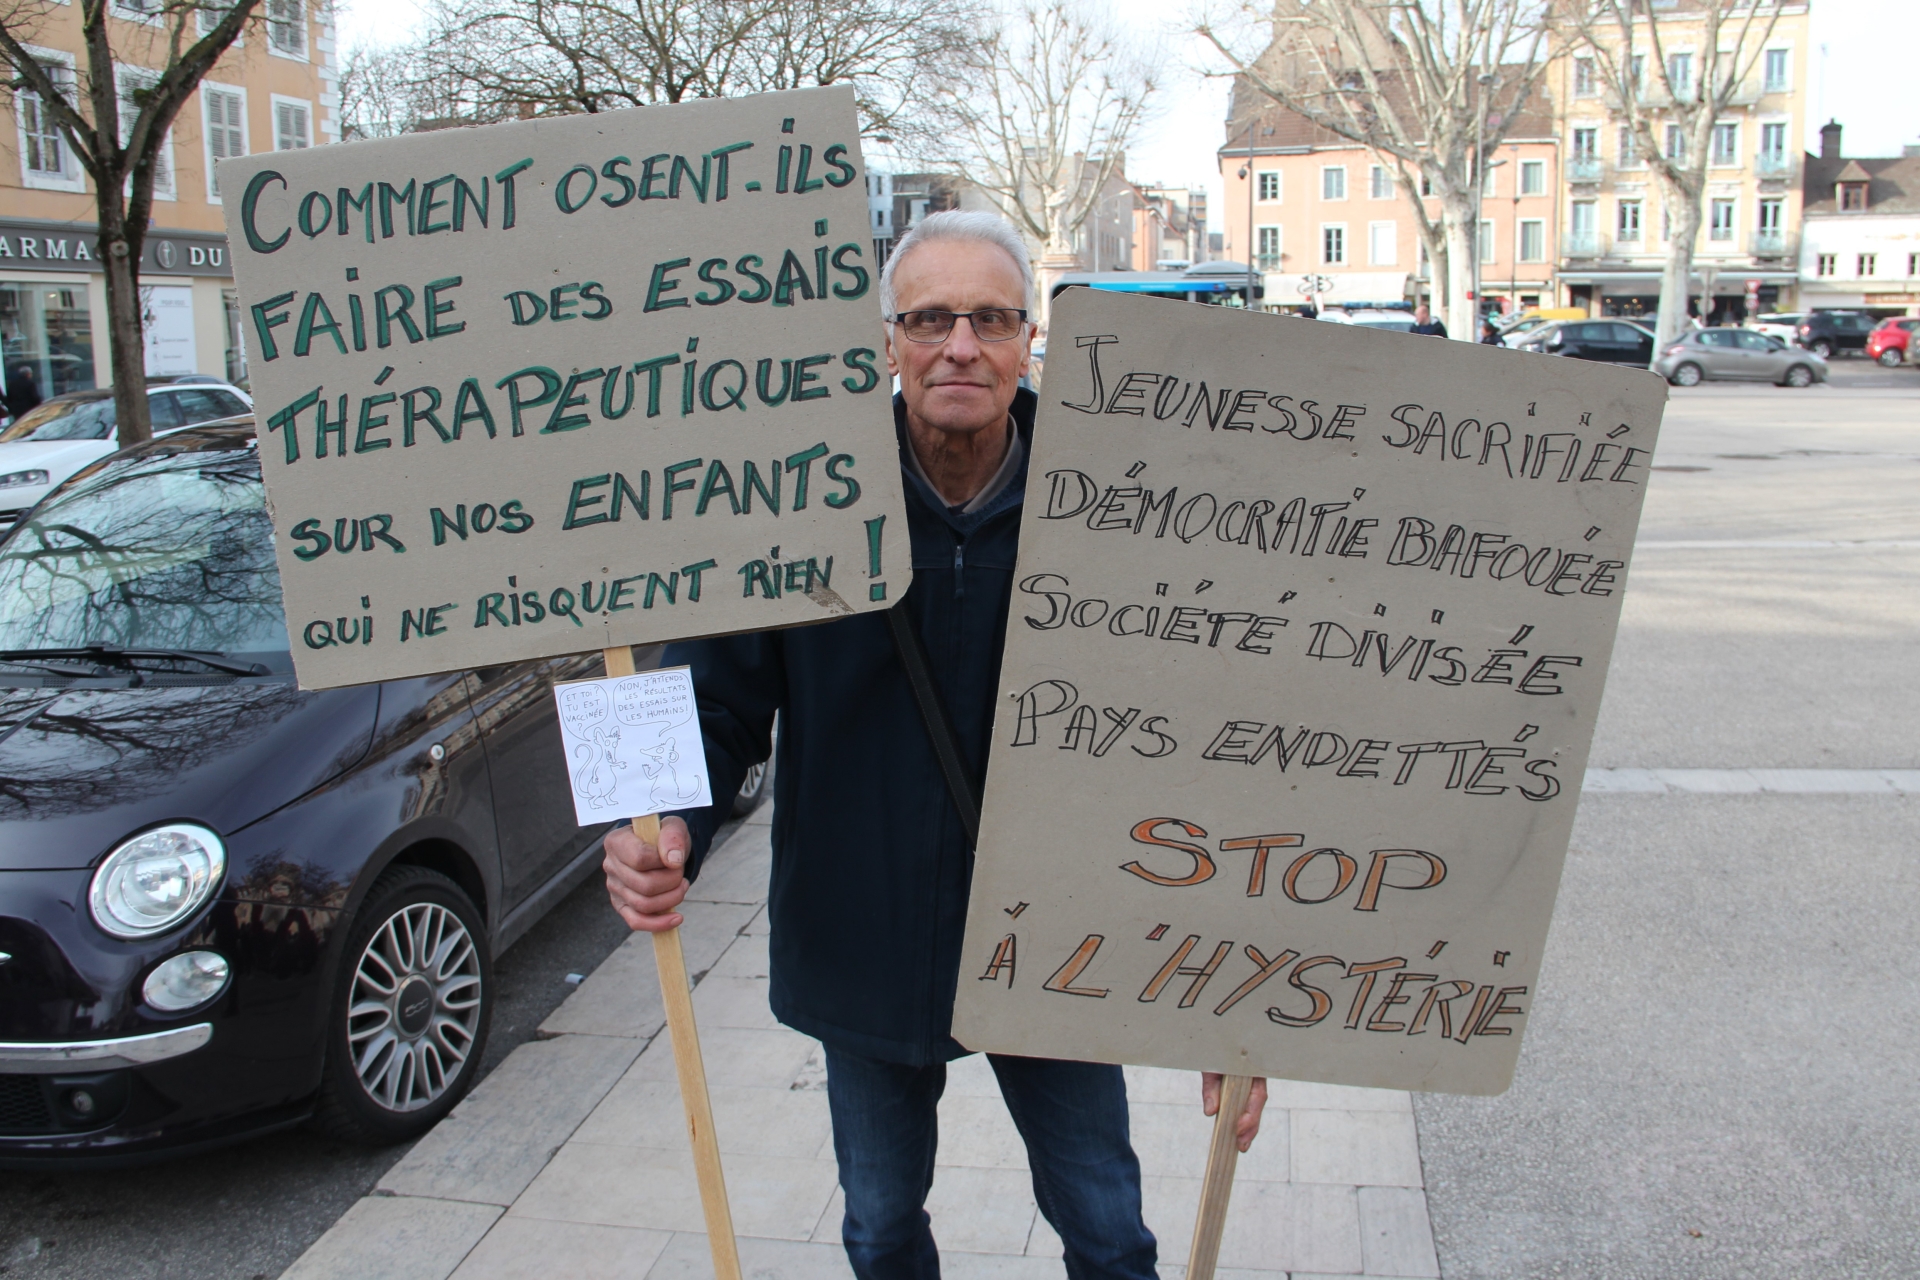 COMMENT OSENT-ILS
FAIRE DES ESSAIS
THÉRAPEUTIQUES
SUR NOS ENFANTS
QUI NE RISQUENT RIEN !
ET TOI ?
TU EST
VACCINÉE
?
NON, J'ATTENDS
LES RÉSULTATS
DES ESSAIS SUR
LES HUMAINS !
JEUNESSE SACRIFIÉE
DÉMOCRATIE BAFOUÉE
SOCIÉTÉ DIVISÉE
PAYS ENDETTÉS
STOP
À L'HYSTÉRIE
ARMA E DU